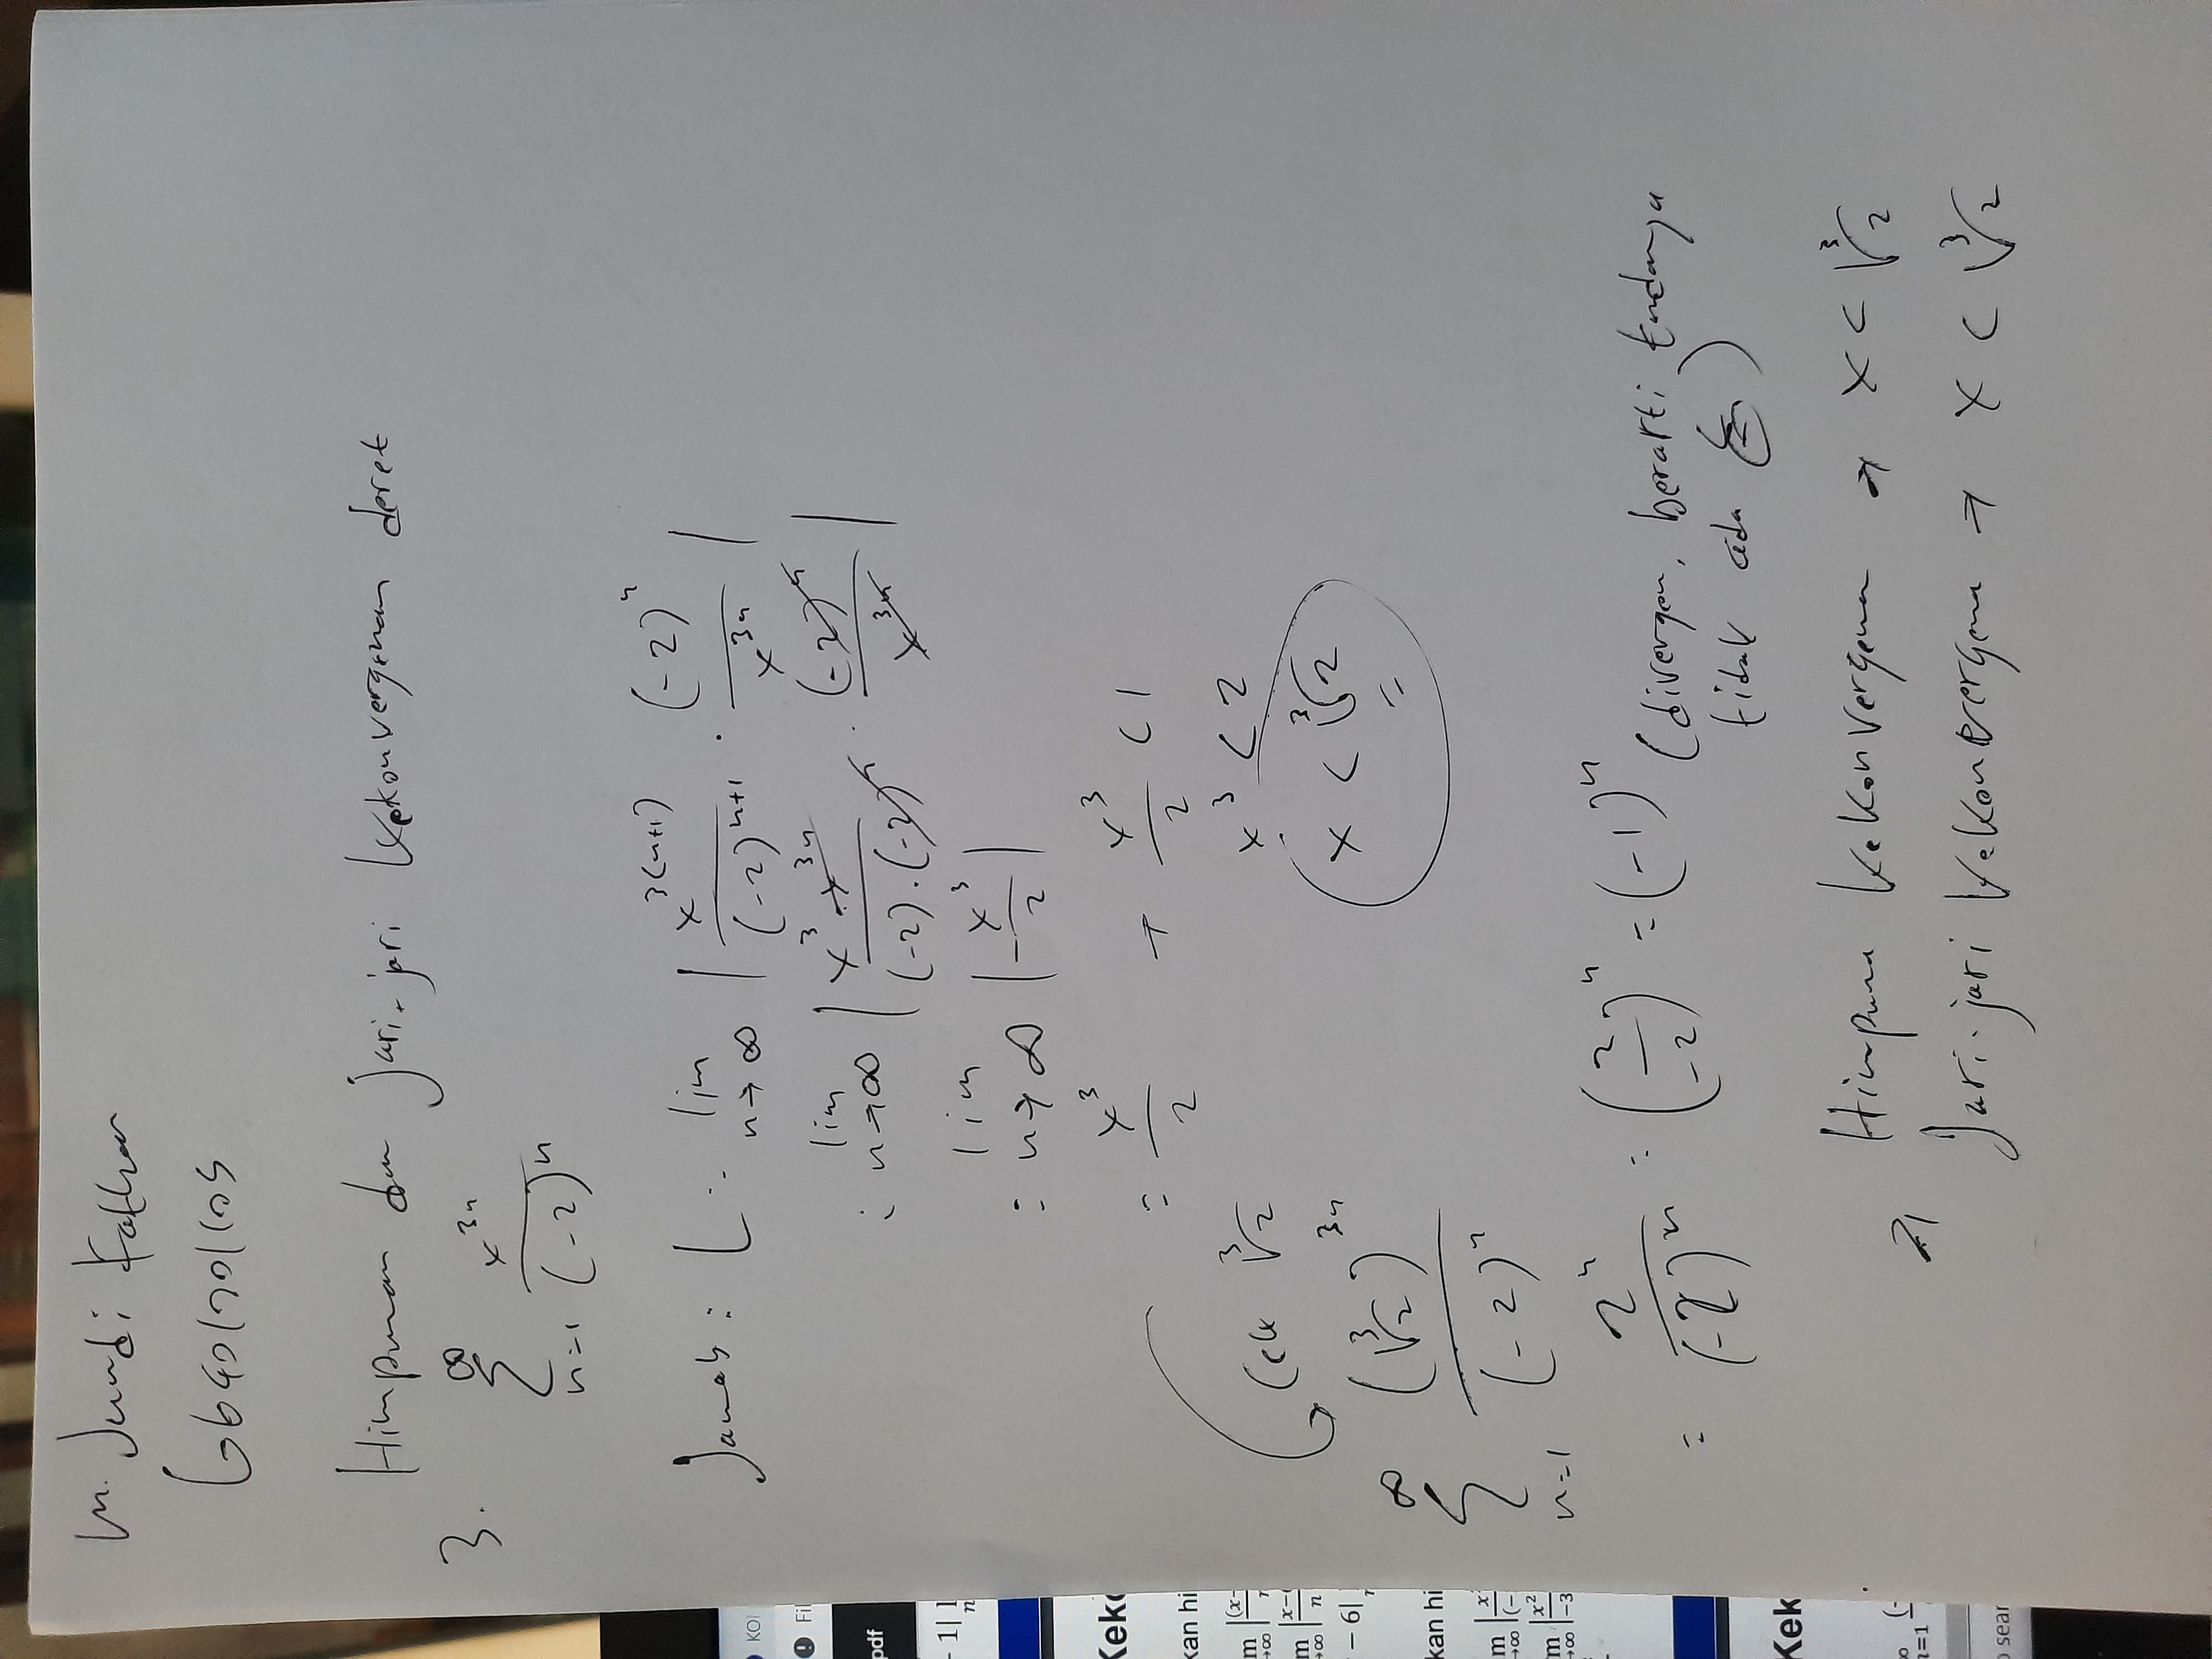 M. Jundi Fathan
G6401201105
Himpunan dan Jari-jari kekonvergenan deret
3. ∞ Σ n=1 x^3n / (-2)^n
Jawab : L = lim n→∞ | x^3(n+1) / (-2)^n+1 · (-2)^n / x^3n |
= lim n→∞ | x^3 · x^3n / (-2) · (-2)^n · (-2)^n / x^3n |
= lim n→∞ | - x^3 / 2 |
= x^3 / 2 → x^3 / 2 < 1
x^3 < 2
x < ∛2
=
Cek ∛2
∞ Σ n=1 (∛2)^3n / (-2)^n
= 2^n / (-2)^n = (2 / -2)^n = (-1)^n (divergen, berarti tandanya
tidak ada =)
Himpuna kekonvergenan → x < ∛2
Jari-jari kekonvergena → x < ∛2
KO
Fil
pdf
- 1| l
n
Kek
kan hi
m |(x-
→∞
m |x-
→∞ n
- 6|
kan hi
m | x
→∞ (-
m | x^2
→∞ -3
Kek
∞ (-
n=1
o sear